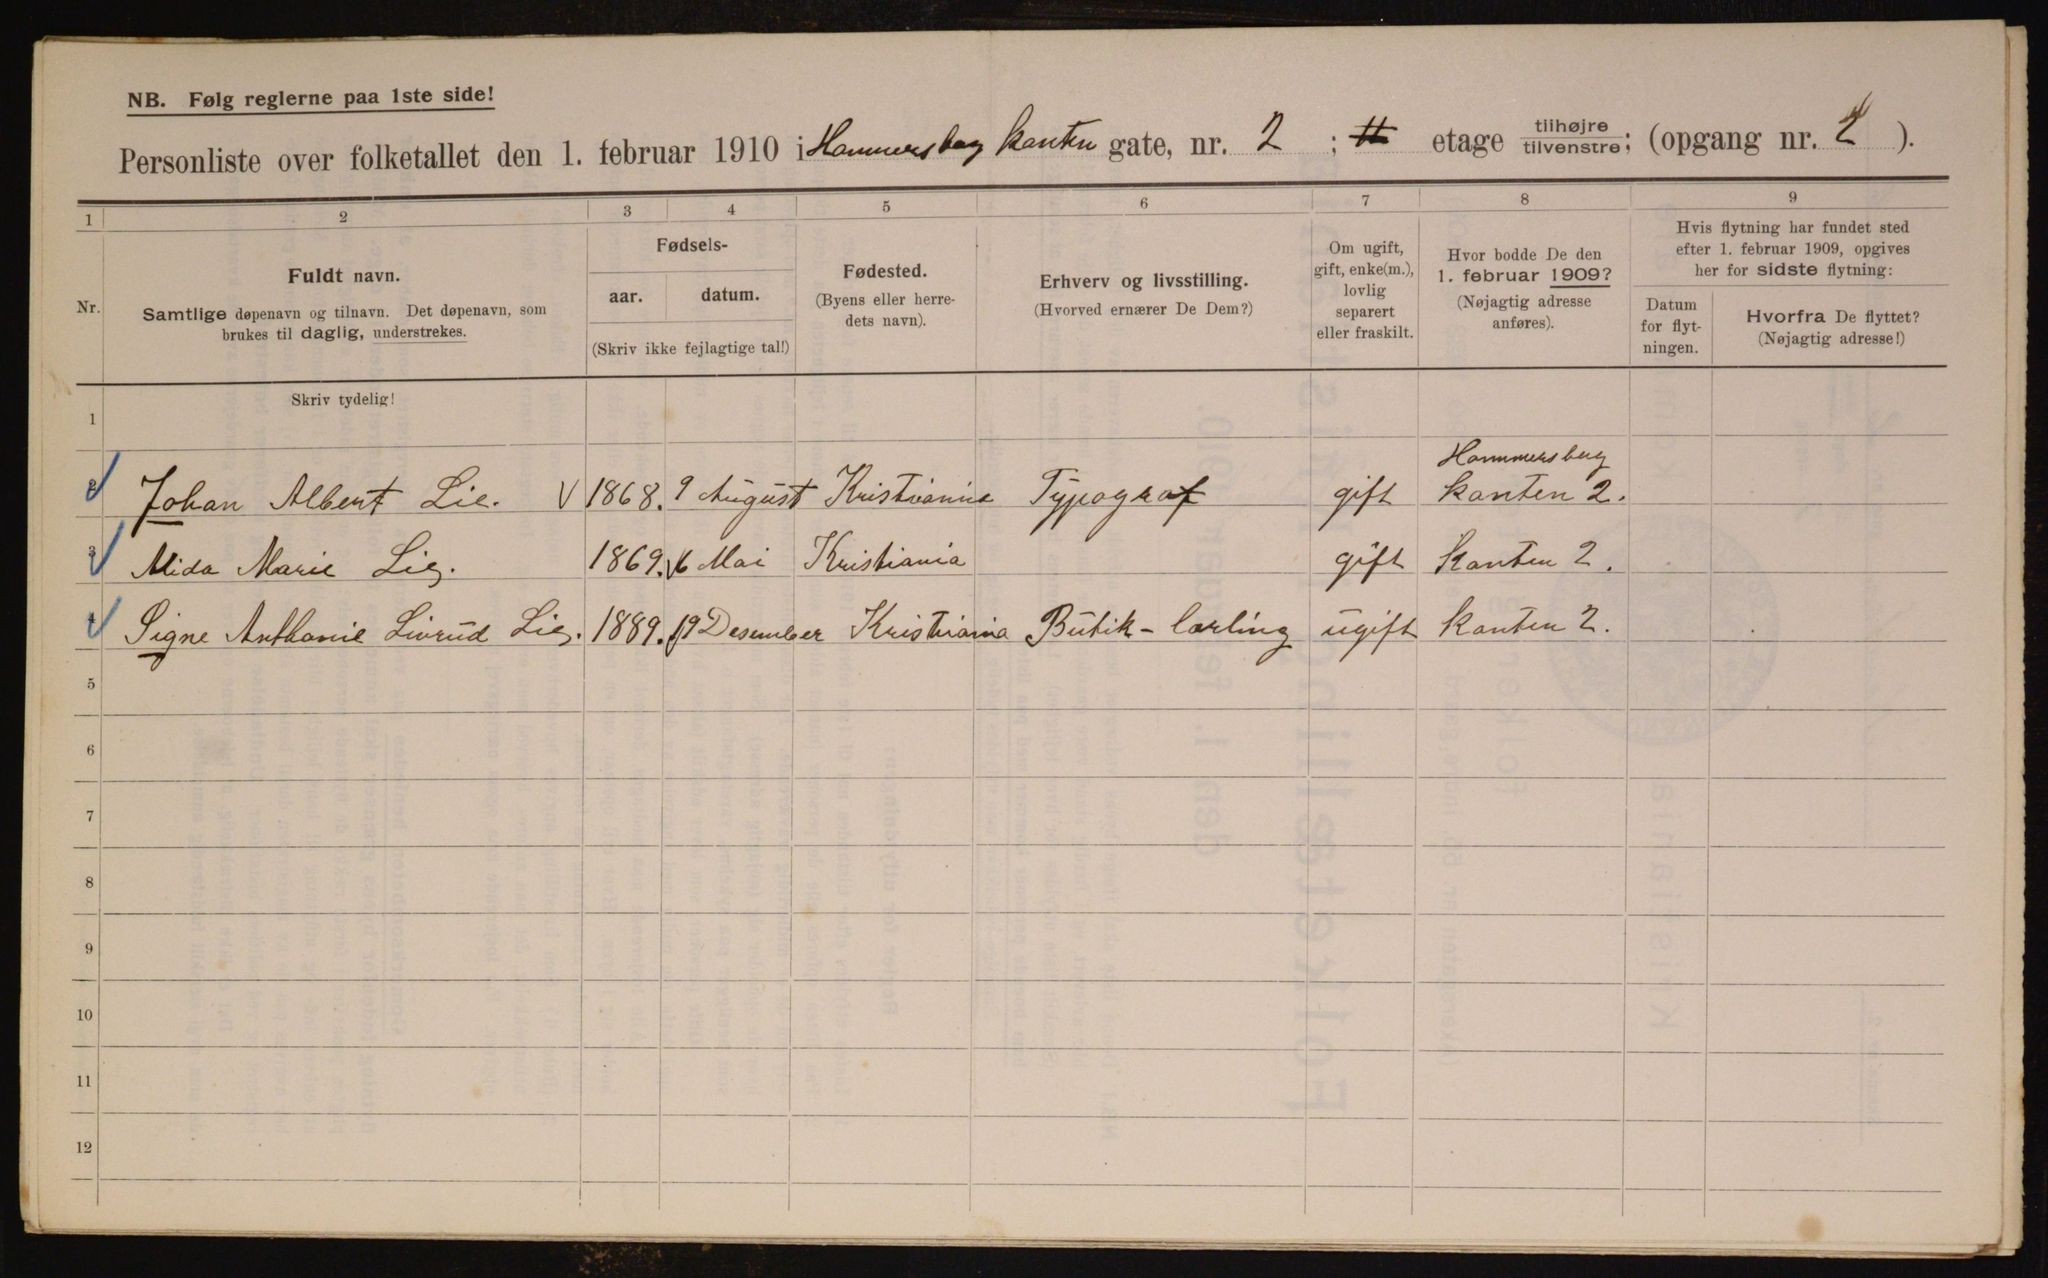 NB. Følg reglerne paa 1ste side!
Personliste over folketallet den 1. februar 1910 i Hammersborg kanten gate, nr. 2 ; II etage tilhøjre tilvenstre; (opgang nr. 2 ).
1 2 3 4 5 6 7 8 9
Nr.
Fuldt navn.
Samtlige døpenavn og tilnavn. Det døpenavn, som
brukes til daglig, understrekes.
Fødsels-
aar. datum.
(Skriv ikke fejlagtige tal!)
Fødested.
(Byens eller herre-
dets navn).
Erhverv og livsstilling.
(Hvorved ernærer De Dem?)
Om ugift,
gift, enke(m.),
lovlig
separert
eller fraskilt.
Hvor bodde De den
1. februar 1909?
(Nøjagtig adresse
anføres).
Hvis flytning har fundet sted
efter 1. februar 1909, opgives
her for sidste flytning:
Datum
for flyt-
ningen.
Hvorfra De flyttet?
(Nøjagtig adresse!)
Skriv tydelig!
1
Hammersborg
2 Johan Albert Lie. V 1868. 9 August Kristiania Typograf gift kanten 2.
3 Alida Marie Lie. 1869. 6 Mai Kristiania gift kanten 2.
4 Signe Anthonie Livrud Lie. 1889. 19 Desember Kristiania Butik-lærling ugift kanten 2.
5
6
7
8
9
10
11
12